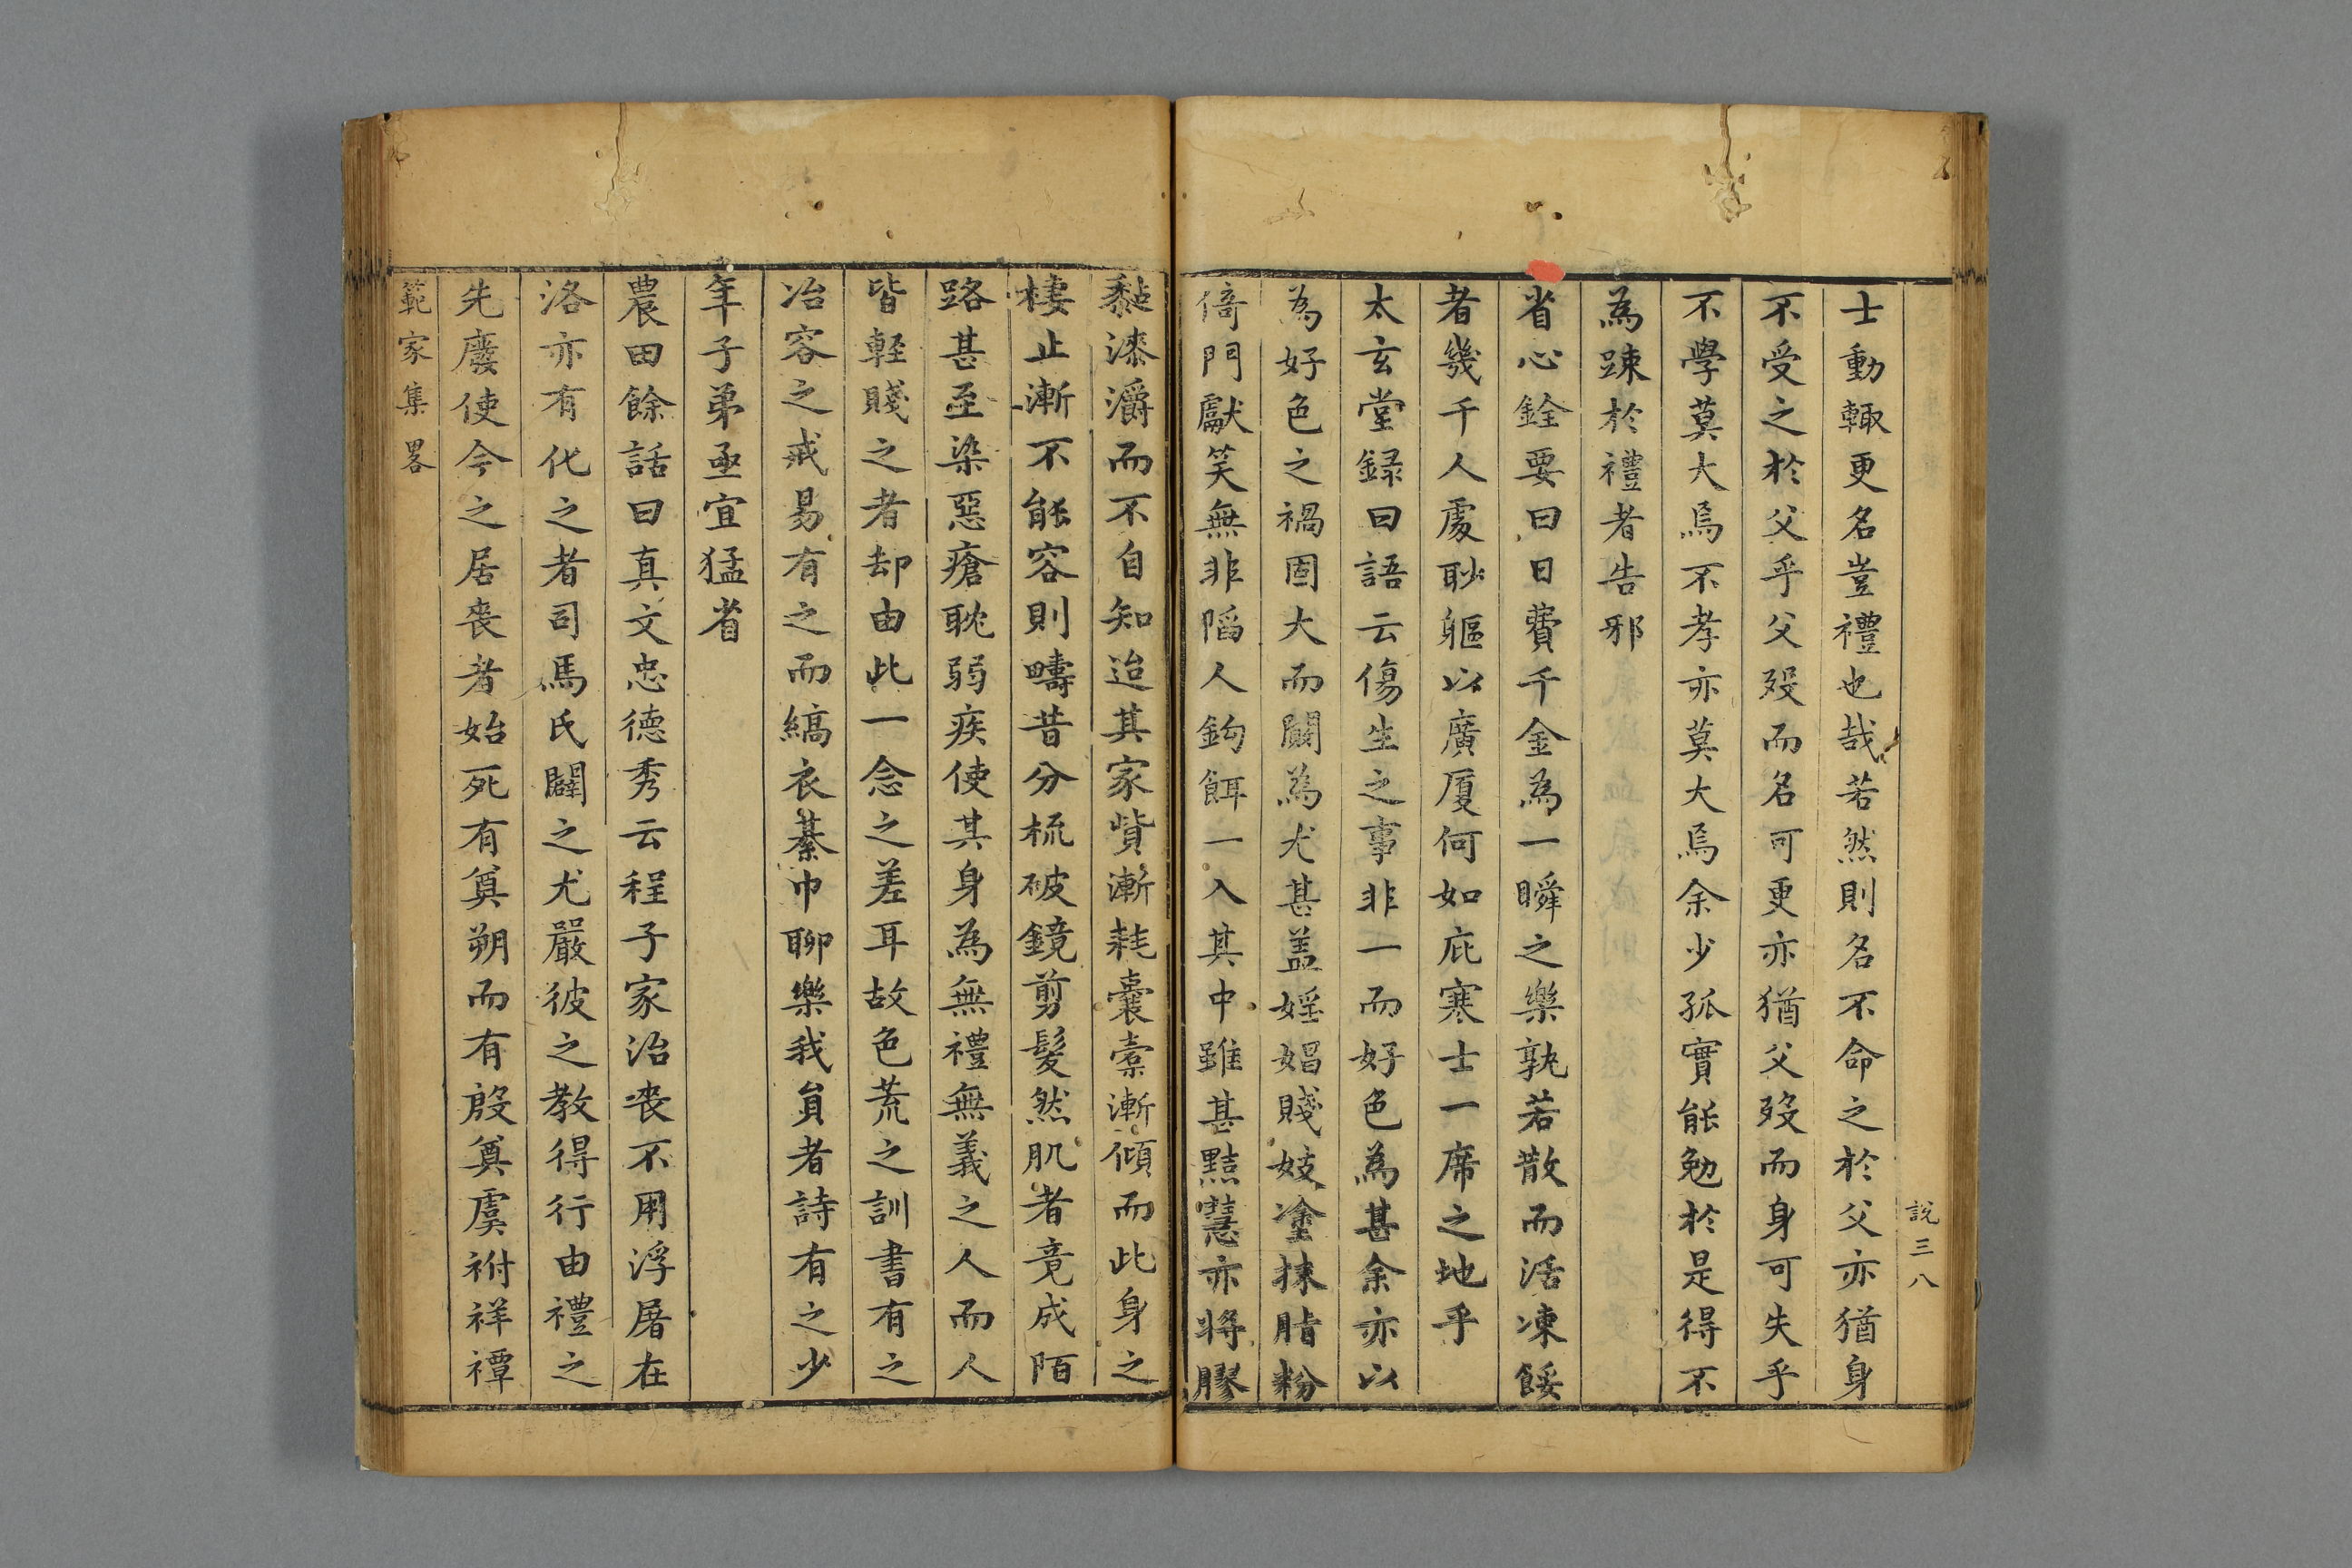 說三八
士動輙更名豈禮也哉若然則名不命之於父亦猶身
不受之於父乎父殁而名可更亦猶父殁而身可失乎
不學莫大焉不孝亦莫大焉余少孤實能勉於是得不
為踈於禮者告邪
省心銓要曰日費千金為一瞬之樂孰若散而活凍餒
者幾千人處眇軀以廣厦何如庇寒士一席之地乎
太玄堂録曰語云傷生之事非一而好色為甚余亦以
為好色之禍固大而闞為尤甚盖婬娼賤妓塗抹脂粉
倚門獻笑無非陷人鈎餌一入其中雖甚黠慧亦將膠
黏漆灂而不自知迨其家貲漸耗囊橐漸傾而此身之
棲止漸不能容則疇昔分梳破鏡剪髮然肌者竟成陌
路甚至染惡瘡耽弱疾使其身為無禮無義之人而人
皆輕賤之者却由此一念之差耳故色荒之訓書有之
冶容之戒易有之而縞衣綦巾聊樂我員者詩有之少
年子弟亟宜猛省
農田餘話曰真文忠德秀云程子家治喪不用浮屠在
洛亦有化之者司馬氏闢之尤嚴彼之教得行由禮之
先廢使今之居喪者始死有奠朔而有殷奠虞祔祥禫
範家集畧